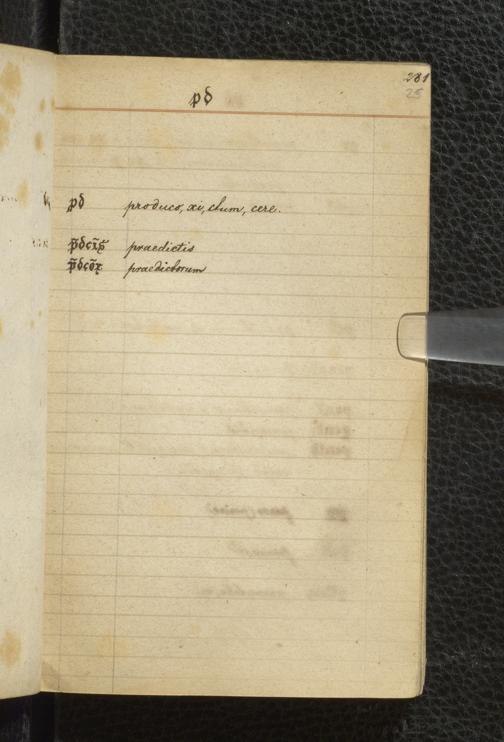 281
25
pd
pd produco, xi, ctum, cere.
p̄dcīs praedictis
p̄dcōꝝ praedictorum